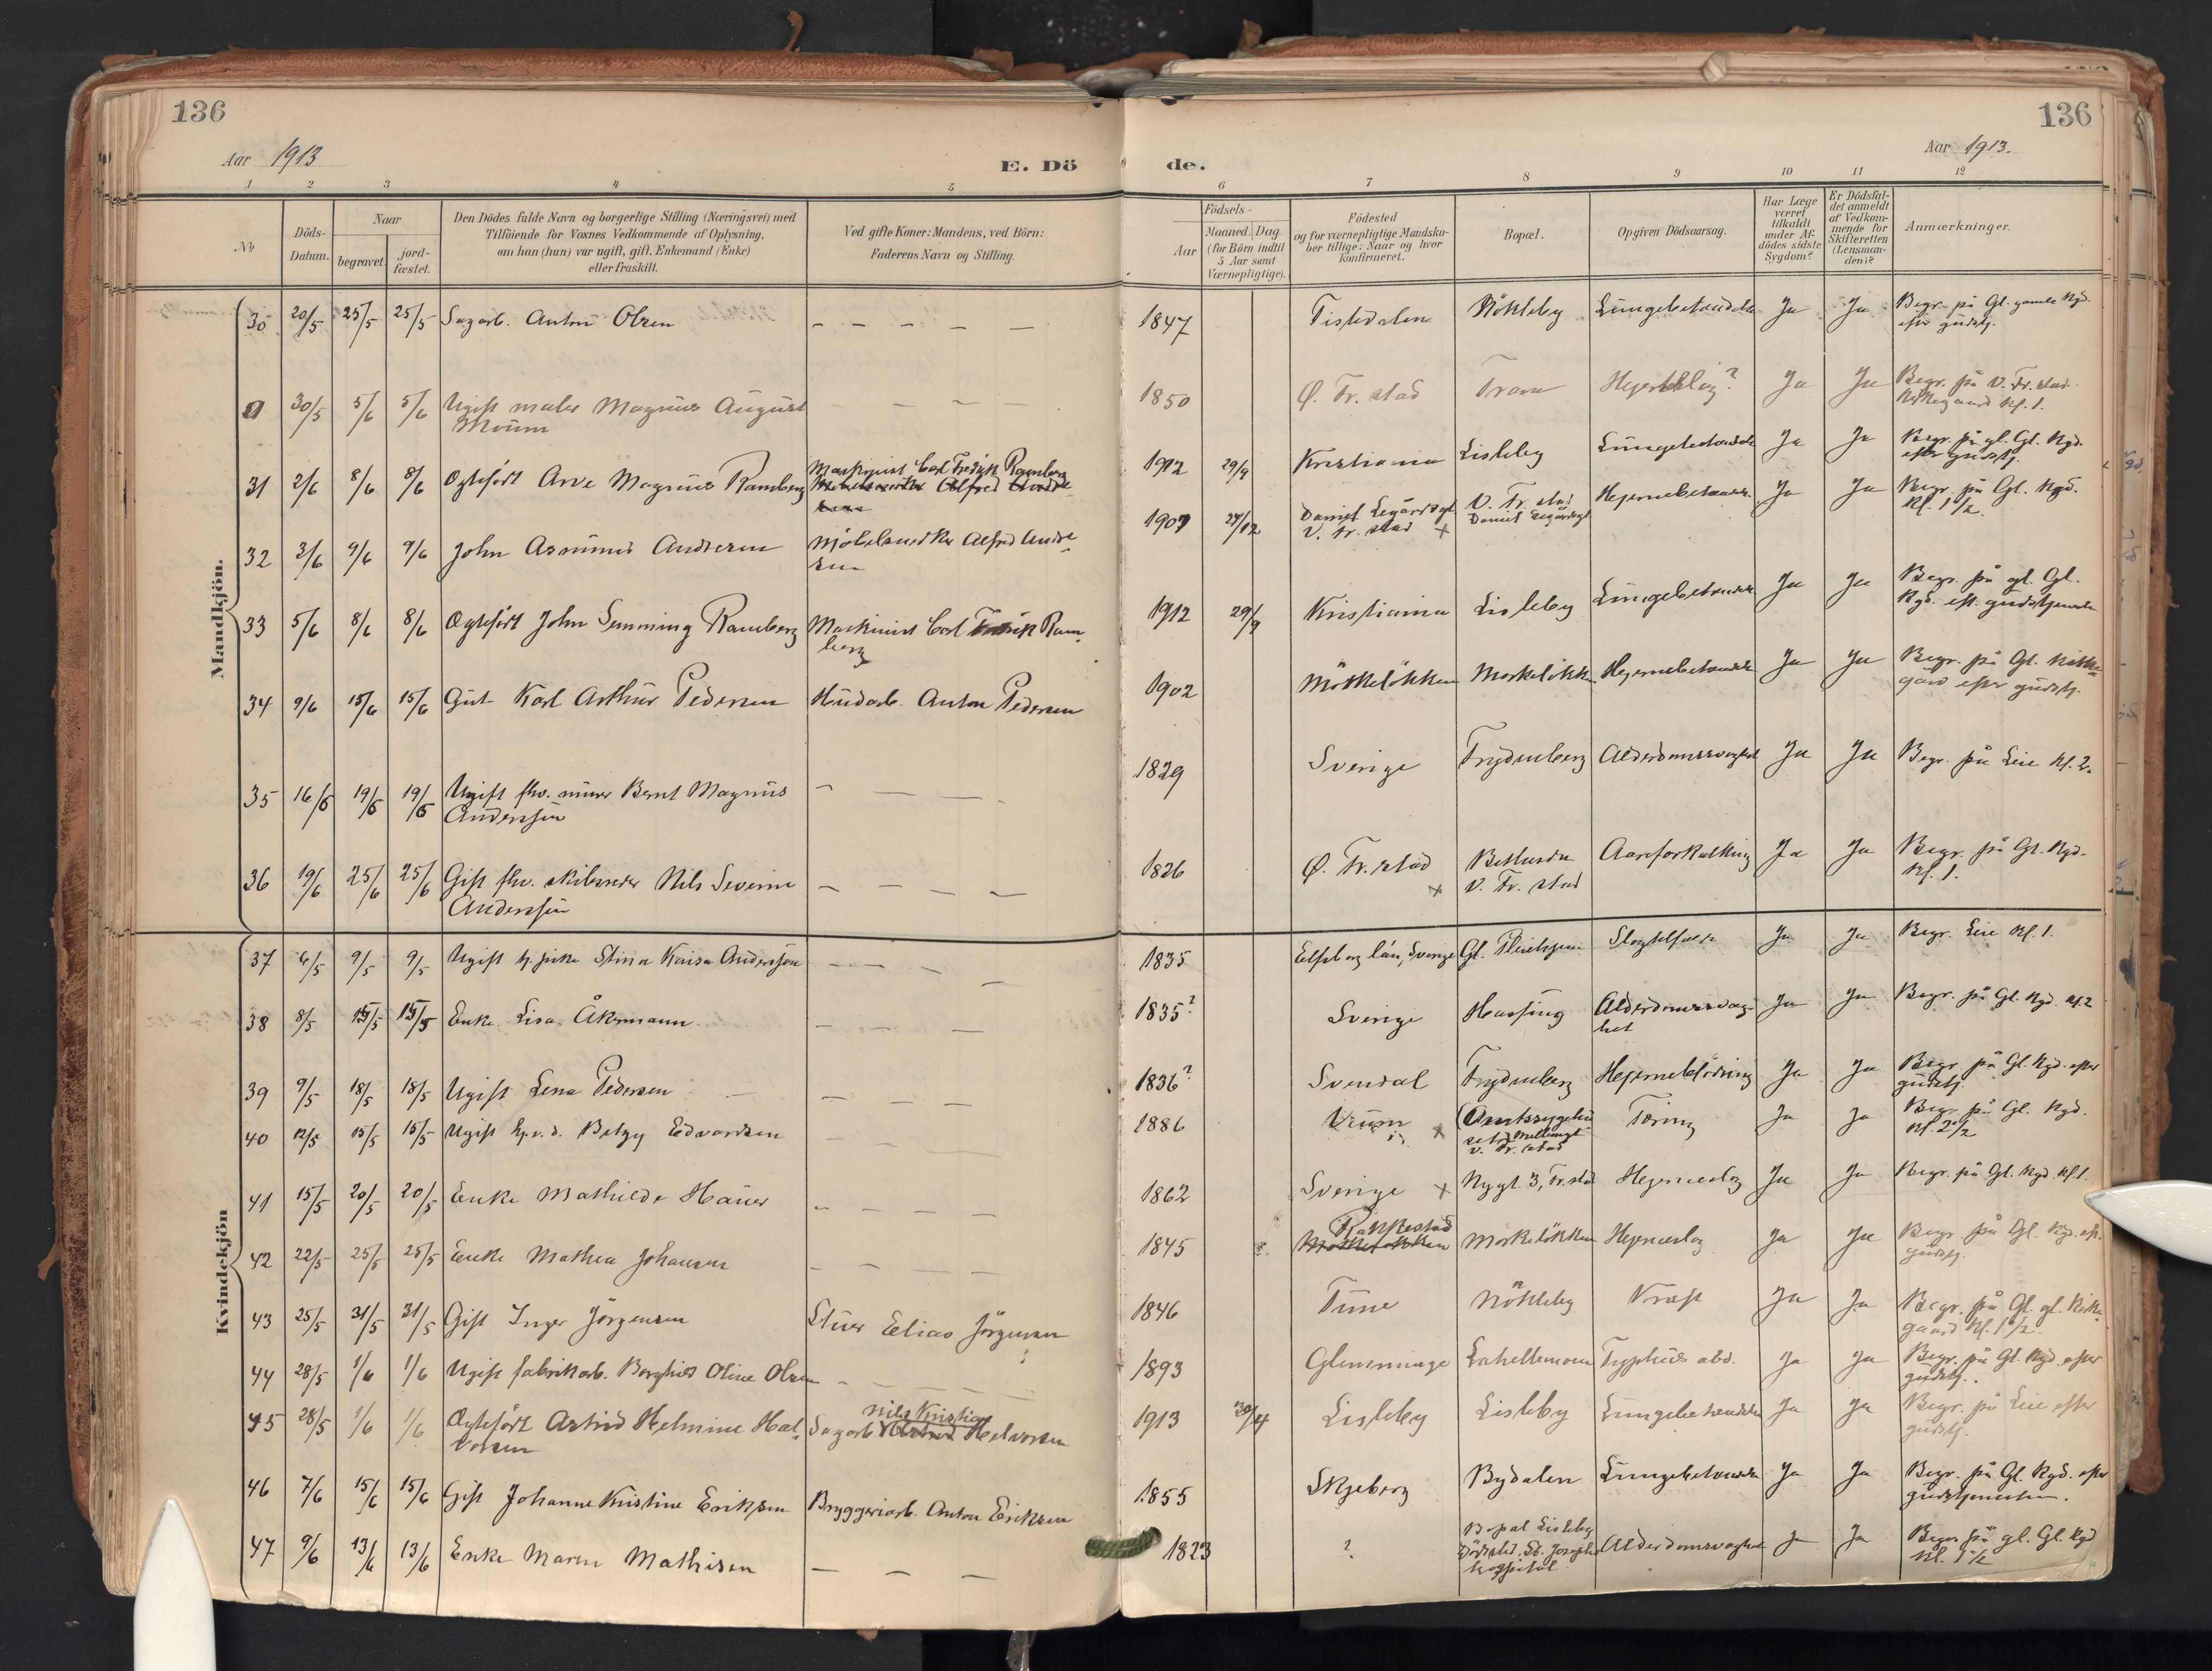 136
Aar 1913
E. Dö
1 2 3 4 5
№
Döds-
Datum.
Naar
begravet.
jord-
fæstet.
Den Dödes fulde Navn og borgerlige Stilling (Næringsvei) med
Tilföiende for Voxnes Vedkommende af Oplysning,
om han (hun) var ugift, gift, Enkemand (Enke)
eller fraskilt.
Ved gifte Koner: Mandens, ved Börn:
Faderens Navn og Stilling.
Mandkjön.
30 20/5 25/5 25/5 Sagarb. Anton Olsen — — — — —
30/5 5/6 5/6 Ugift maler Magnus August
Moum
31 2/6 8/6 8/6 Ægtefödt Arve Magnus Ramberg Maskinist Carl Fredrik Ramberg
32 3/6 9/6 9/6 John Asmund Andresen Möbelsnedker Alfred Andre
sen
33 5/6 8/6 8/6 Ægtefödt John Semming Ramberg Maskinist Carl Fredrik Ram-
berg
34 9/6 15/6 15/6 Gut Karl Arthur Pedersen Husarb. Anton Pedersen
35 16/6 19/6 19/6 Ugift fhv. murer Bernt Magnus
Anderssön
36 19/6 25/6 25/6 Gift fhv. skibsreder Nils Severin
Anderssön
Kvindekjön
37 6/5 9/5 9/5 Ugift tj. pike Stina Kaisa Andersson
38 8/5 15/5 15/5 Enke Lisa Åkermann
39 9/5 18/5 18/5 Ugift Lena Pedersen
40 12/5 15/5 15/5 Ugift Betzy Edvardsen
41 15/5 20/5 20/5 Enke Mathilde Hauer
42 22/5 25/5 25/5 Enke Mathea Johansen
43 25/5 31/5 31/5 Gift Inger Jörgensen Stuer Elias Jörgensen
44 28/5 1/6 1/6 Ugift fabrikarb. Borghild Oline Olsen
45 28/5 1/6 1/6 Ægtefödt Astrid Helmine Hal-
vorsen
Nils Kristian
Sagarb. Halvorsen
46 7/6 15/6 15/6 Gift Johanne Kristine Eriksen Bryggeriarb. Anton Eriksen
47 9/6 13/6 13/6 Enke Maren Mathisen
136
Aar 1913.
de.
6 7 8 9 10 11 12
Födsels-
Aar
Maaned. Dag.
(for Börn indtil
5 Aar samt
Værnepligtige).
Födested
og for værnepligtige Mandska-
ber tillige: Naar og hvor
konfirmeret.
Bopæl.
Opgiven Dödsaarsag.
Har Læge
været
tilkaldt
under Af-
dödes sidste
Sygdom?
Er Dödsfal-
det anmeldt
af Vedkom-
mende for
Skifteretten
(Lensman-
den)?
Anmærkninger.
1847 Tistedalen Nökleby Lungebetændelse Ja Ja Begr. på Gl. gamle Kgd.
efter gudstj.
1850 Ø. Fr.stad Trara Hjerteslag? Ja Ja Begr. på V. Fr.stad
Kirkegaard Kl. 1.
1912 29/9 Kristiania Lisleby Lungebetændelse Ja Ja Begr. på gl. Gl. Kgd.
efter gudstj.
1907 27/12 Daniel Legårdsgt
V. Fr.stad x V. Fr. stad
Daniel Legårdsgt Hjernebetændelse Ja Ja Begr. på Gl. Kgd.
Kl. 1 1/2
1912 29/9 Kristiania Lisleby Lungebetændelse Ja Ja Begr. på gl. Gl.
Kgd. eft. gudstjeneste
1902 Mörkelökken Mörkelökken Hjernebetændelse Ja Ja Begr. på Gl. Kirke-
gård efter gudstj.
1829 Sverige Frydenberg Alderdomssvaghet Ja Ja Begr. på Leie Kl. 2.
1826 Ø. Fr.stad x Betlusda
V. Fr. stad Aareforkalkning Ja Ja Begr. på Gl. Kgd.
Kl. 1.
1835 Elfsborg län, Sverige Gl. Pleiehjem Ja Ja Begr. Leie Kl. 1.
1835? Sverige Hassing Alderdomssvag-
het Ja Ja Begr. på Gl. Kgd. Kl. 2
1836? Svendal Frydenberg Hjerneblödning Ja Ja Begr. på Gl. Kgd. efter
gudstj.
1886 Urum x Amtssygehu
set
V. Fr. stad Tæring Ja Ja Begr. på Gl. Kgd.
Kl. 2 1/2
1862 Sverige x Nygt. 3, Fr.stad Hjerneslag Ja Ja Begr. på Gl. Kgd. Kl. 1.
1845 Rakkestad
Mörkelökken Mörkelökken Hjerneslag Ja Ja Begr. på Gl. Kgd. eft.
gudstj.
1846 Tune Nökleby Kræft Ja Ja Begr. på Gl. gl. Kirke-
gaard Kl. 1 1/2.
1893 Glemminge Lahellemoen Typhus abd. Ja Ja Begr. på Gl. Kgd. efter
gudstj.
1913 30/4 Lisleby Lisleby Lungebetændelse Ja Ja Begr. på Leie efter
gudstj.
1855 Skjeberg Bydalen Lungebetændelse Ja Ja Begr. på Gl. Kgd. efter
gudstjenesten.
1823 ? Bopæl Lisleby
Dödssted: St. Josephs
hospital Alderdomssvaghet Ja Ja Begr. på gl. Gl. Kgd
Kl. 1 1/2